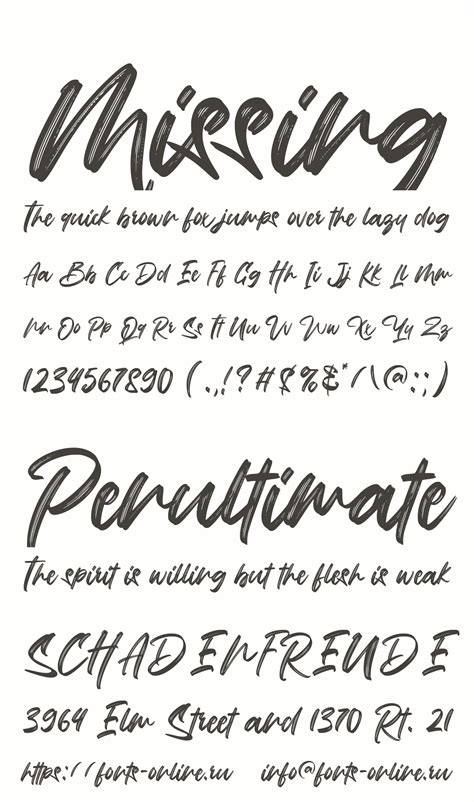 Missing
The quick brown fox jumps over the lazy dog
Aa Bb Cc Dd Ee Ff Gg Hh Ii Jj Kk Ll Mm
Nn Oo Pp Qq Rr Ss Tt Uu Vv Ww Xx Yy Zz
1234567890 (.,!?#$%&*/\@:;)
Penultimate
The spirit is willing but the flesh is weak
SCHADENFREUDE
3964 Elm Street and 1370 Rt. 21
https://fonts-online.ru info@fonts-online.ru